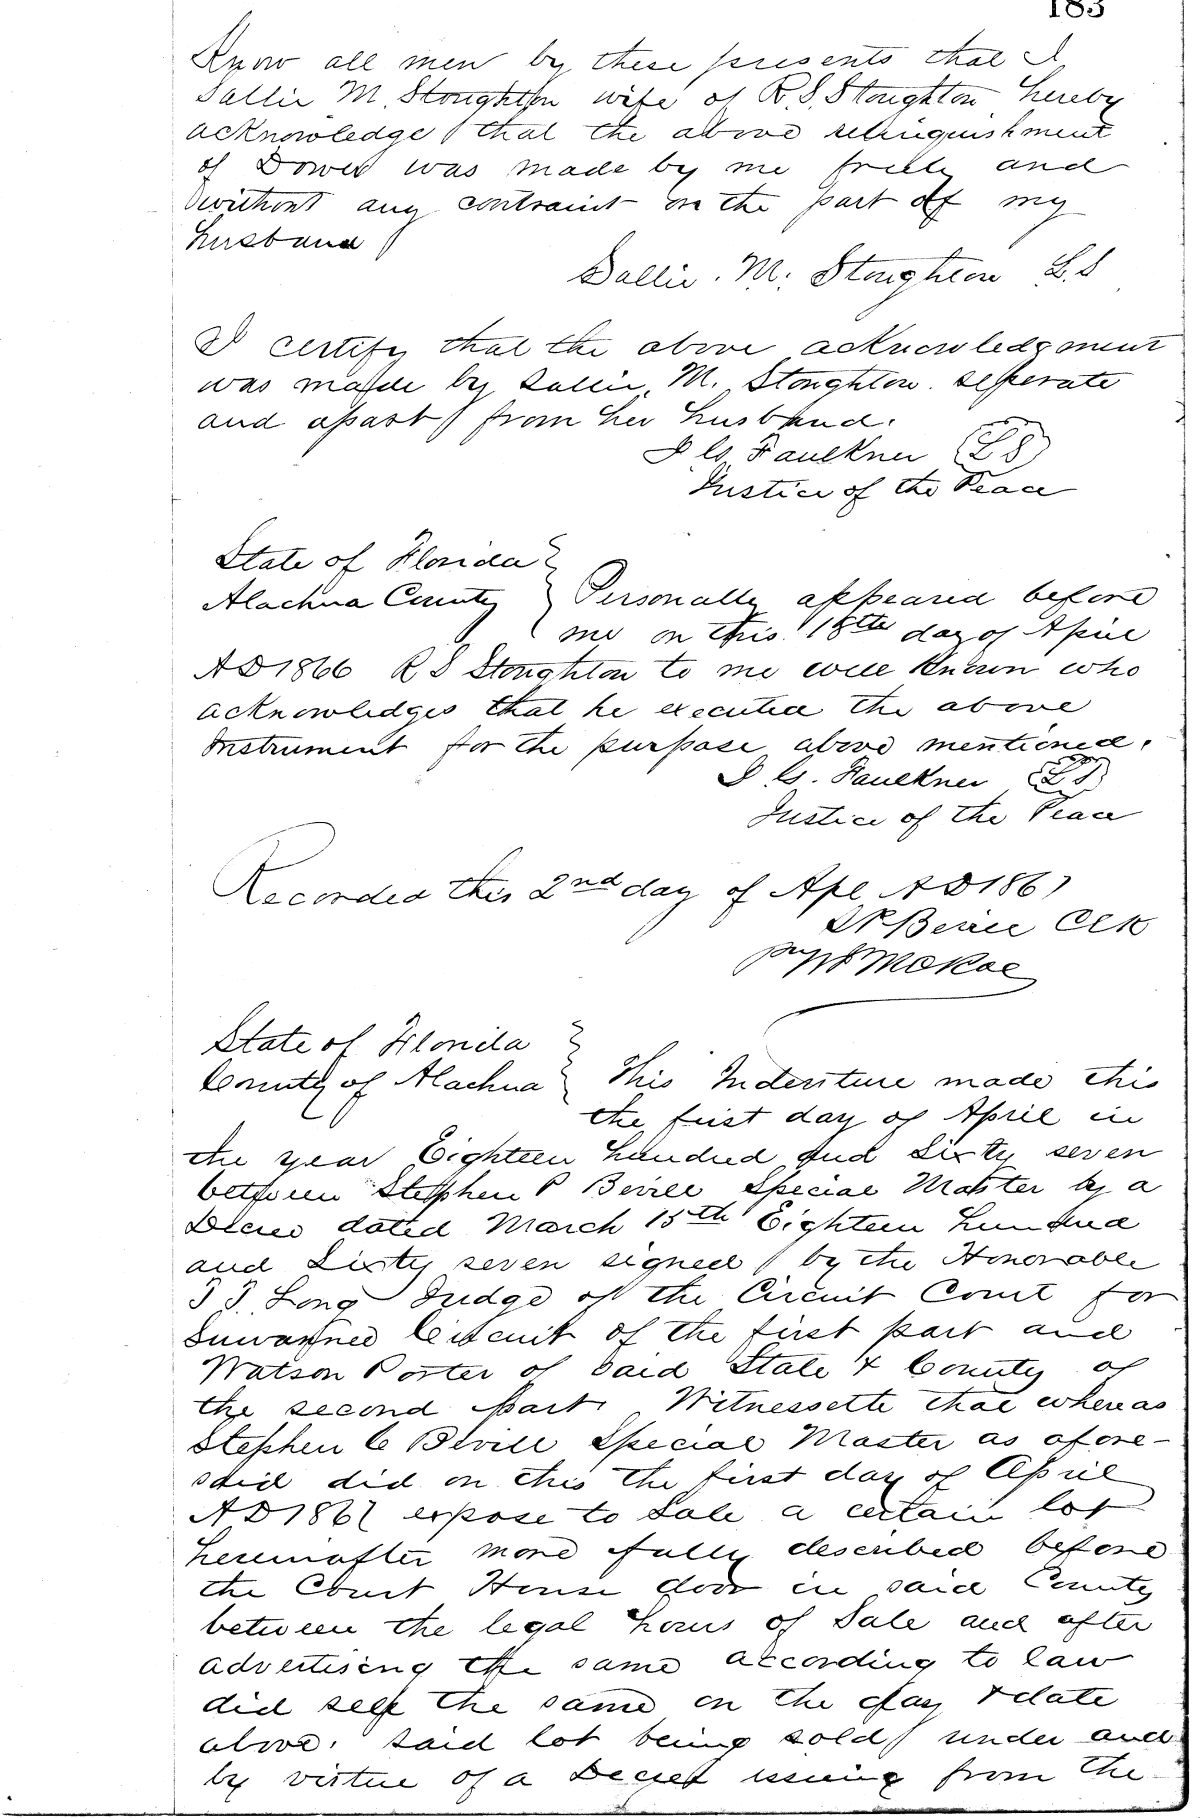 183
Know all men by these presents that I
Sallie M. Stoughton wife of R. S. Stoughton hereby
acknowledge that the above relinquishment
of Dower was made by me freely and
without any contraint on the part of my
husband
Sallie. M. Stoughton L.S
I certify that the above acknowledgment
was made by Sallie M. Stoughton seperate
and apart from her husband.
Faulkner LS
Justice of the Peace
State of Florida
Alachua County Personally appeared before
me on this 18th day of April
AD 1866 R S Stoughton to me well known who
acknowledges that he executed the above
Instrument for the purpose above mentioned.
Faulkner LS
Justice of the Peace
Recorded this 2nd day of Apl AD 1867
Bevill Clk
McRae
State of Florida
County of Alachua This Indenture made this
the first day of April in
the year Eighteen hundred and Sixty seven
between Stephen P Bevill Special Master by a
Decree dated March 15th Eighteen hundred
and Sixty seven signed by the Honorable
T. T. Long Judge of the Circuit Court for
Suwannee Circuit of the first part and
Watson Porter of Said State & County of
the second part. Witnesseth that whereas
Stephen C Bevill Special Master as afore-
said did on this the first day of April
AD 1867 expose to Sale a certain lot
hereinafter more fully described before
the Court House door in said County
between the legal hours of Sale and after
advertising the same according to law
did sell the same on the day & date
above. Said lot being sold under and
by virtue of a Decree issuing from the